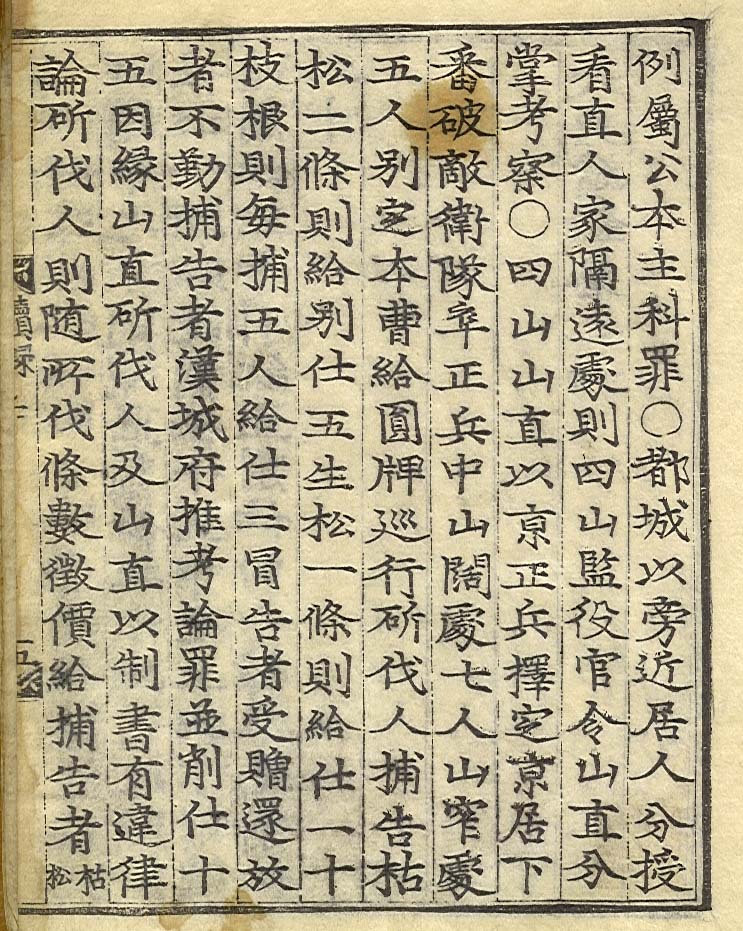 例屬公本主科罪○都城以旁近居人分授
看直人家隔遠處則四山監役官令山直分
掌考察○四山山直以京正兵擇定京居下
番破敵衛隊卒正兵中山闊處七人山窄處
五人別定本曹給圓牌巡行斫伐人捕告枯
松二條則給別仕五生松一條則給仕一十
枝根則每捕五人給仕三冒告者受贈還放
者不勤捕告者漢城府推考論罪並削仕十
五因緣山直斫伐人及山直以制書有違律
論斫伐人則随所伐條數徵價給捕告者枯松
續録
五